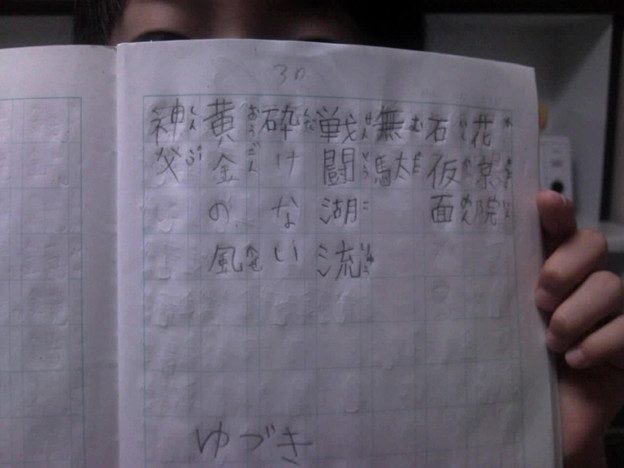 30
花京院
石仮面
無駄
戦闘湖流
砕けない
黄金の風
神父
ゆづき